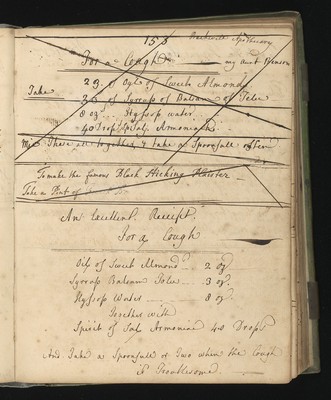 155
Apothecary
For a Cough my Aunt
Take 2 oz of Oyl of Sweet Almonds
3 oz of Syrrop of Balsam of Tolu
8 oz Hyssop water
40 Drops Sp Sal Armoniack
Mix These all together & take a Spoonfull often
To make the famous Black Sticking Plaister
Take a Pint of
An Excellent Receipt
For a Cough
Oil of Sweet Almond 2 oz
Syrrop Balsam Tolu 3 oz
Hyssop Water 8 oz
Together with
Spirit of Sal Armoniac 40 Drops
And Take a Spoonfull or Two when the Cough
is Troublesome